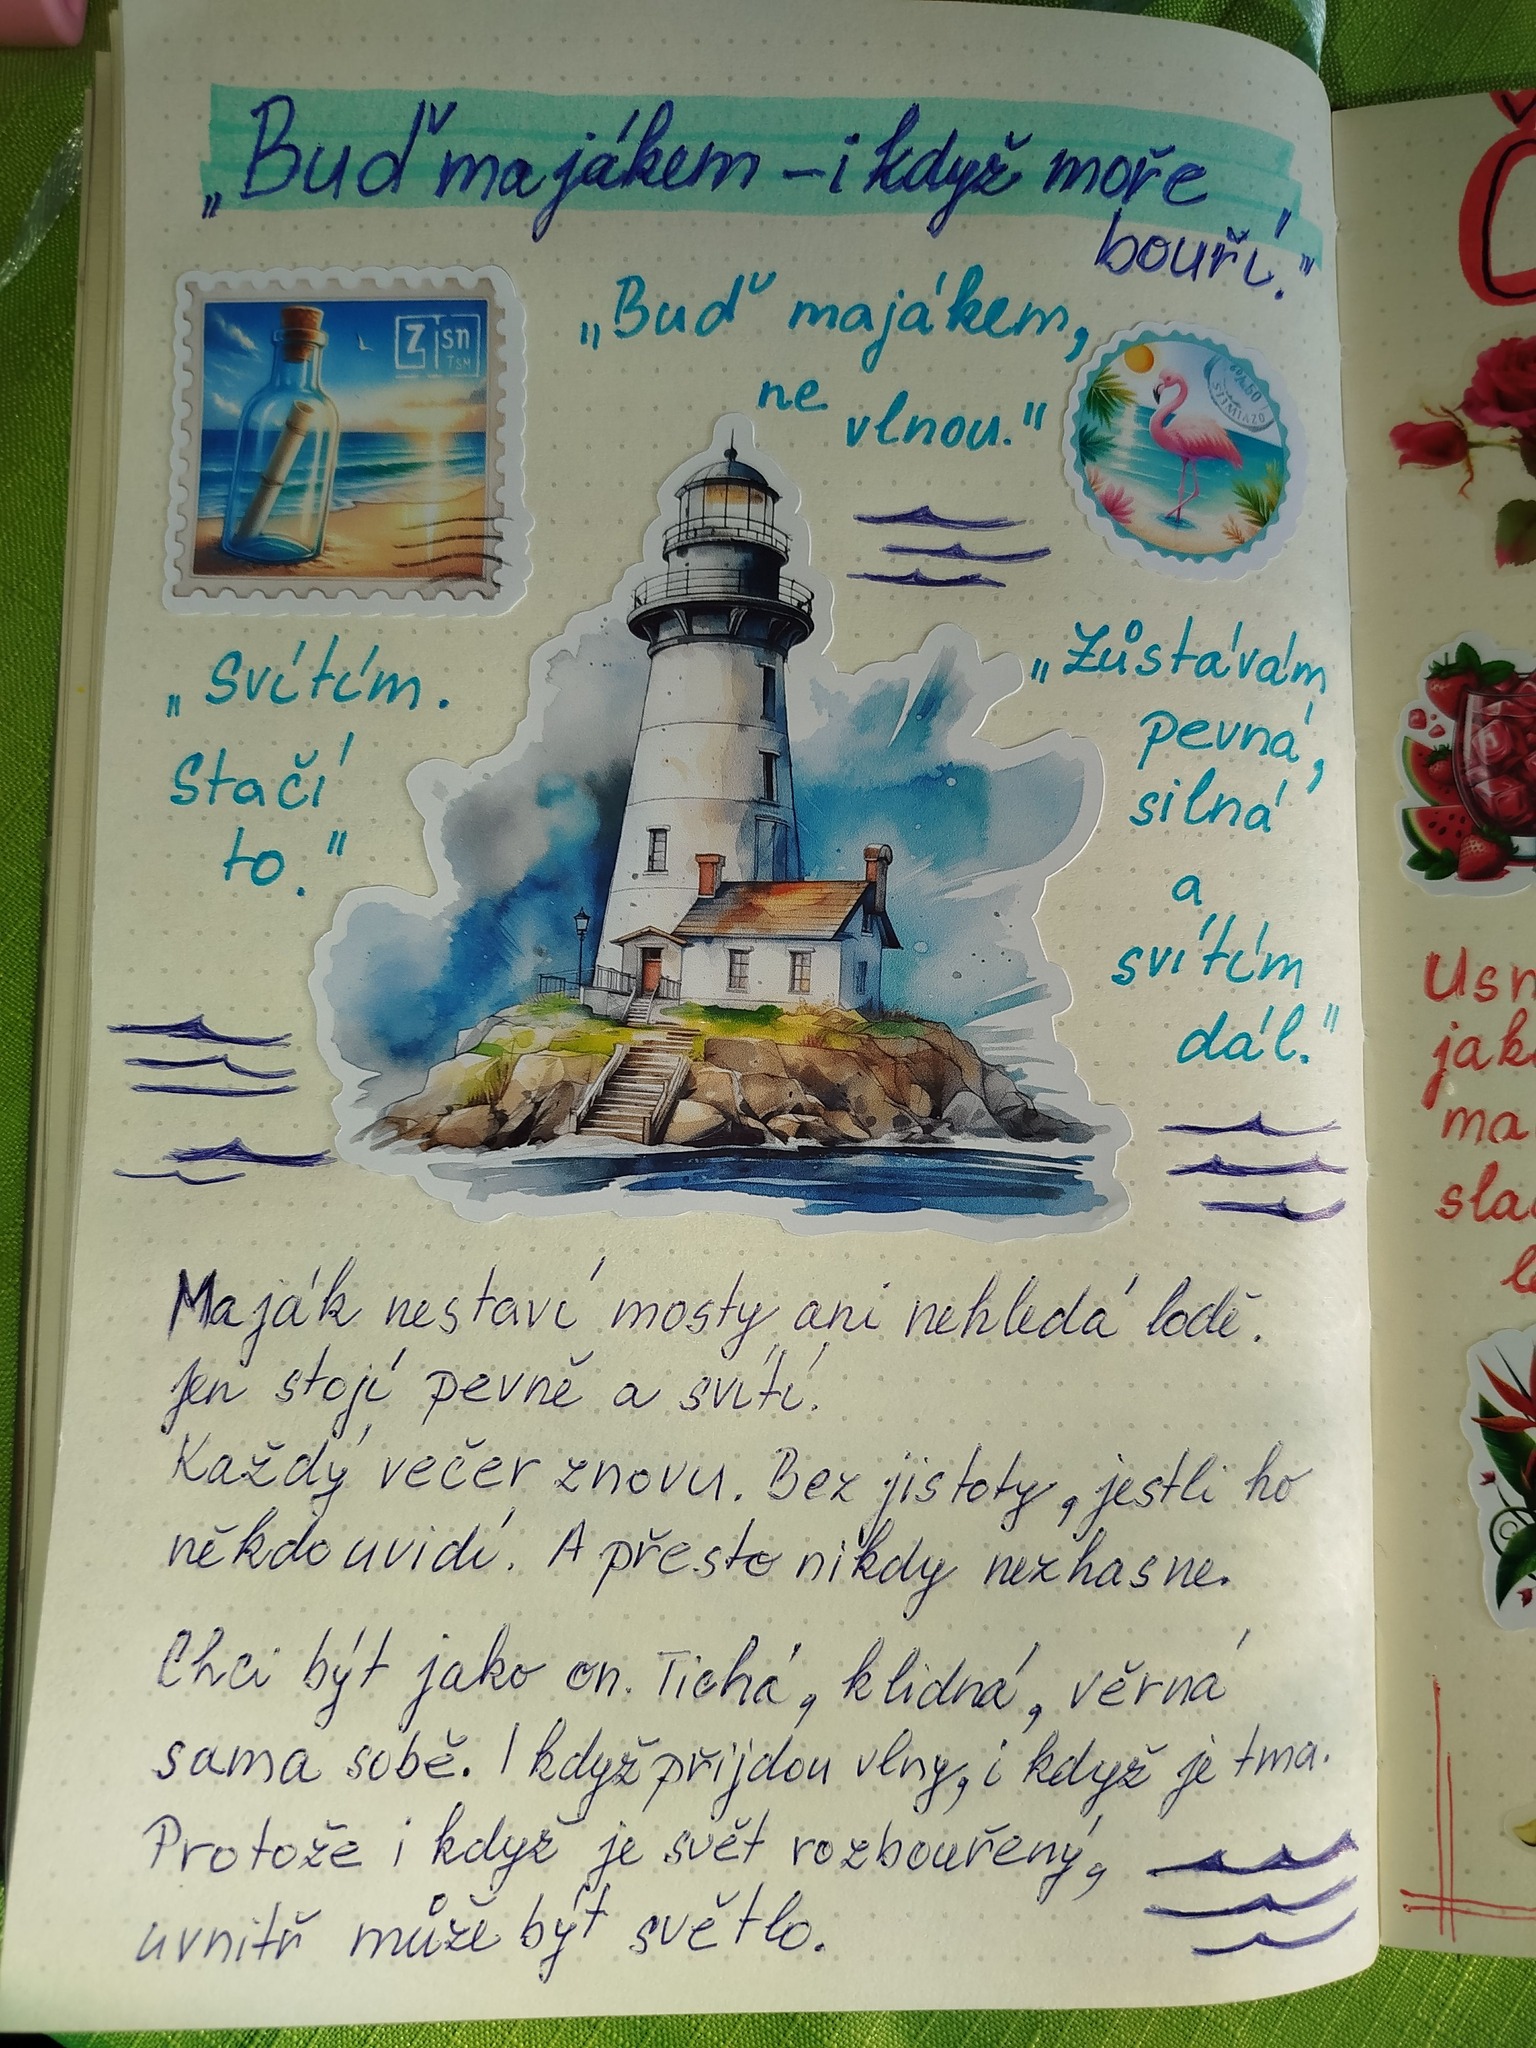 „Buď majákem – i když moře
bouří."
„Buď majákem,
ne vlnou."
Z sn
TSM
„Svítím.
Stačí
to."
„Zůstávám
pevná,
silná
a
svítím
dál."
Maják nestaví mosty ani nehledá lodě.
Jen stojí pevně a svítí.
Každý večer znovu. Bez jistoty, jestli ho
někdo uvidí. A přesto nikdy nezhasne.
Chci být jako on. Tichá, klidná, věrná
sama sobě. I když přijdou vlny, i když je tma.
Protože i když je svět rozbouřený,
uvnitř může být světlo.